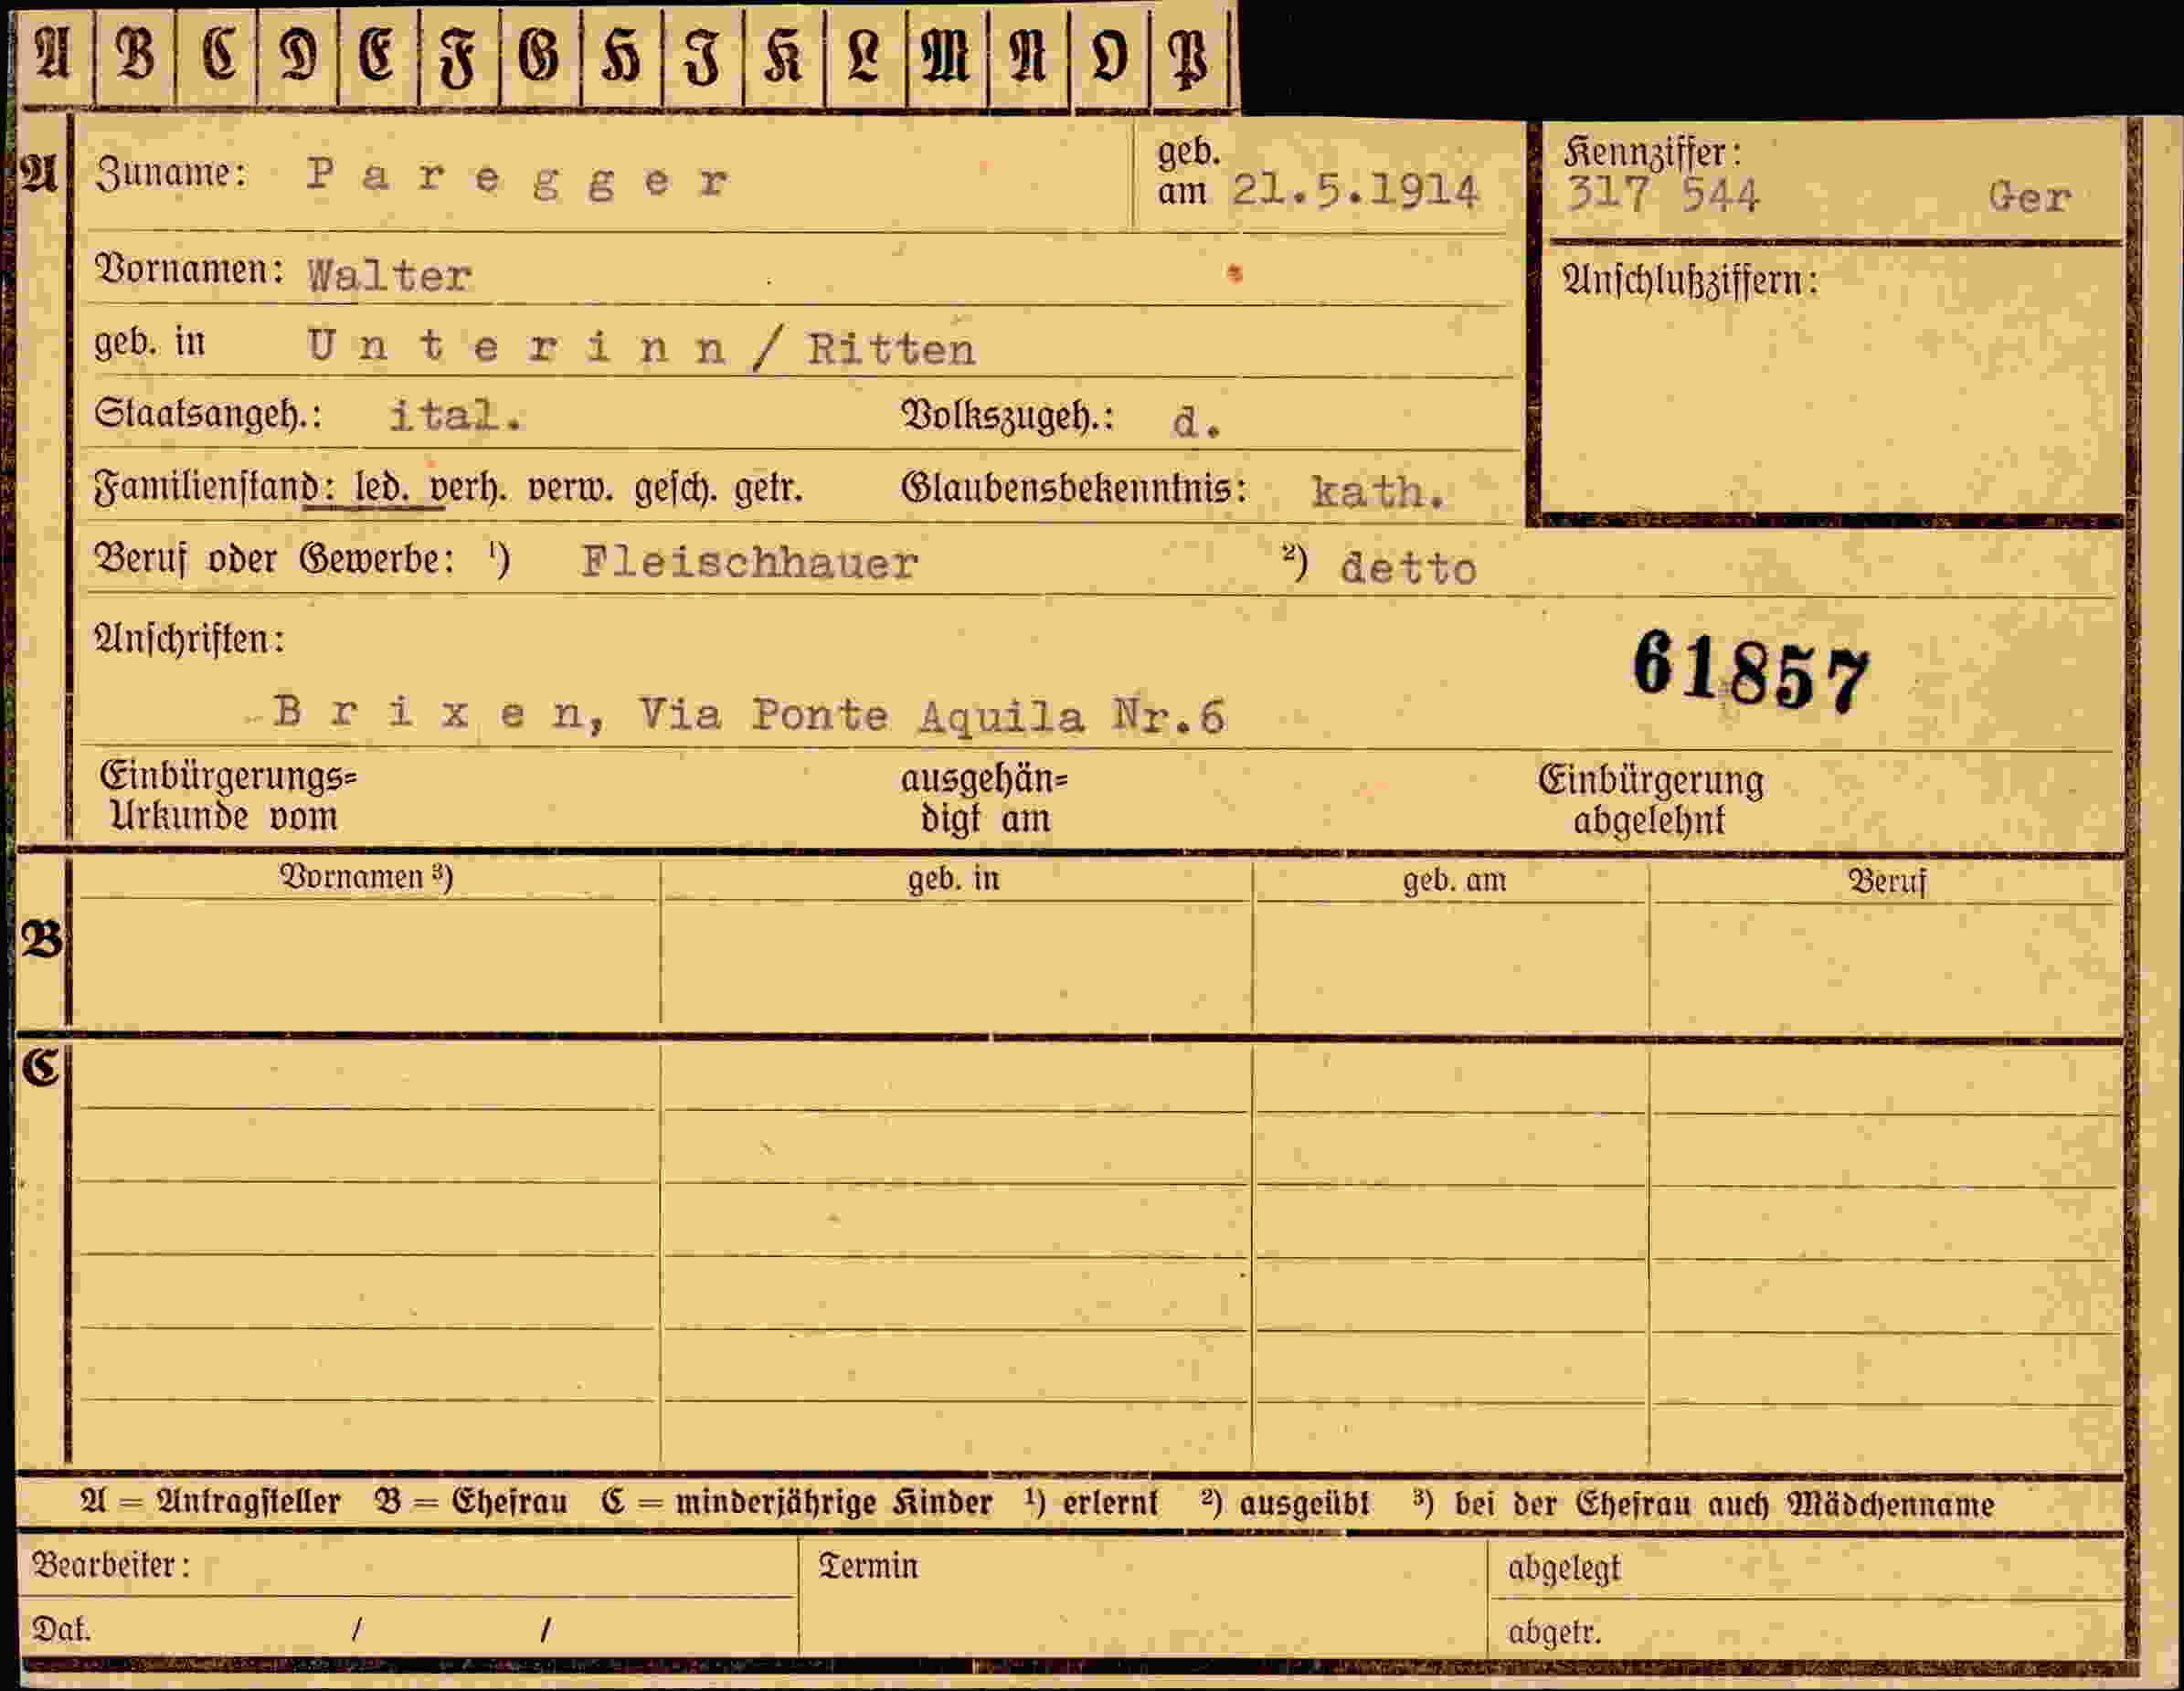 A B C D E F G H I K L M N O P
A Zuname: Paregger geb. am 21.5.1914 Kennziffer: 317 544 Ger
Vornamen: Walter Anschlußziffern:
geb. in Unterinn/Ritten
Staatsangeh.: ital. Volkszugeh.: d.
Familienstand: led. verh. verw. gesch. getr. Glaubensbekenntnis: kath.
Beruf oder Gewerbe: ¹) Fleischhauer ²) detto
Anschriften: 61857
Brixen, Via Ponte Aquila Nr.6
Einbürgerungs= ausgehän= Einbürgerung
Urkunde vom digt am abgelehnt
Vornamen ³) geb. in geb. am Beruf
B
C
A = Antragsteller B = Ehefrau C = minderjährige Kinder ¹) erlernt ²) ausgeübt ³) bei der Ehefrau auch Mädchenname
Bearbeiter: Termin abgelegt
Dat. / / abgetr.